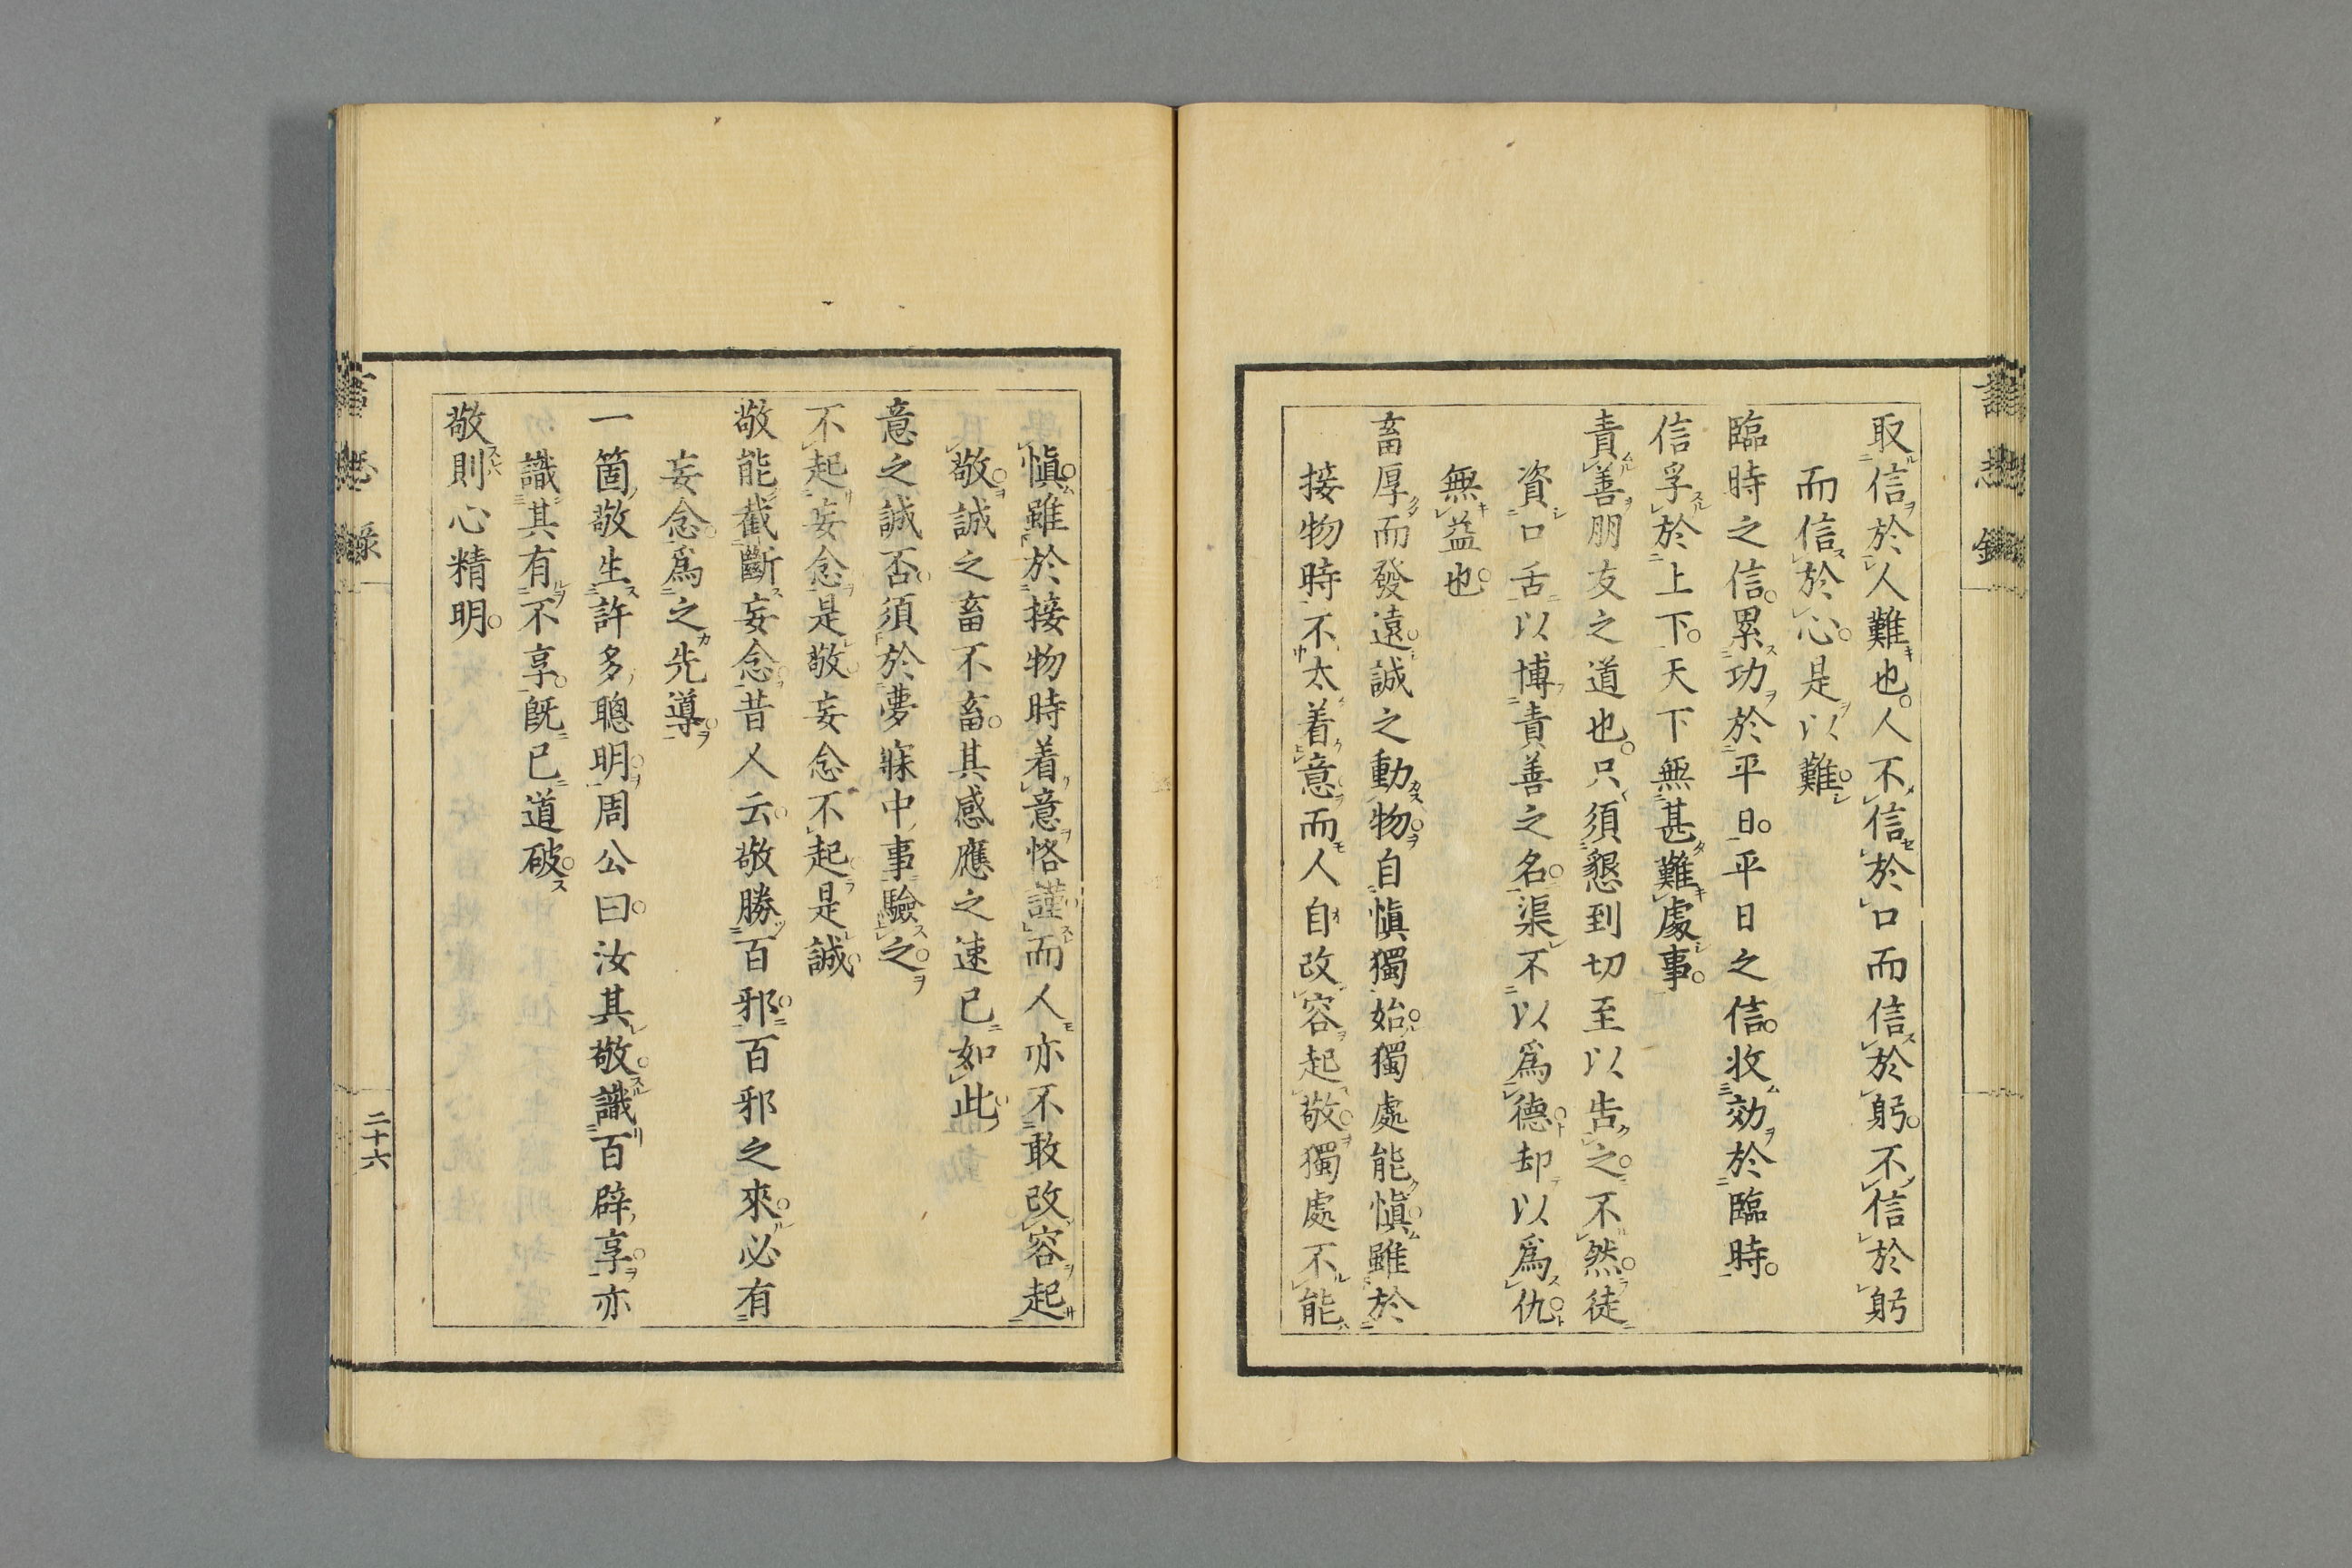 取信於人難也人不信於口而信於躬不信於躬
而信於心是以難
臨時之信累功於平日平日之信收効於臨時
信孚於上下天下無甚難處事
責善朋友之道也只須懇到切至以告之不然徒
資口舌以博責善之名渠不以爲德却以爲仇
無益也
畜厚而發遠誠之動物自愼獨始獨處能愼雖於
接物時不太着意而人自改容起敬獨處不能
愼雖於接物時着意恪謹而人亦不敢改容起
敬誠之畜不畜其感應之速已如此
意之誠否須於夢寐中事驗之
不起妄念是敬妄念不起是誠
敬能截斷妄念昔人云敬勝百邪百邪之來必有
妄念爲之先導
一箇敬生許多聰明周公曰汝其敬識百辟享亦
識其有不享既已道破
敬則心精明
二十六